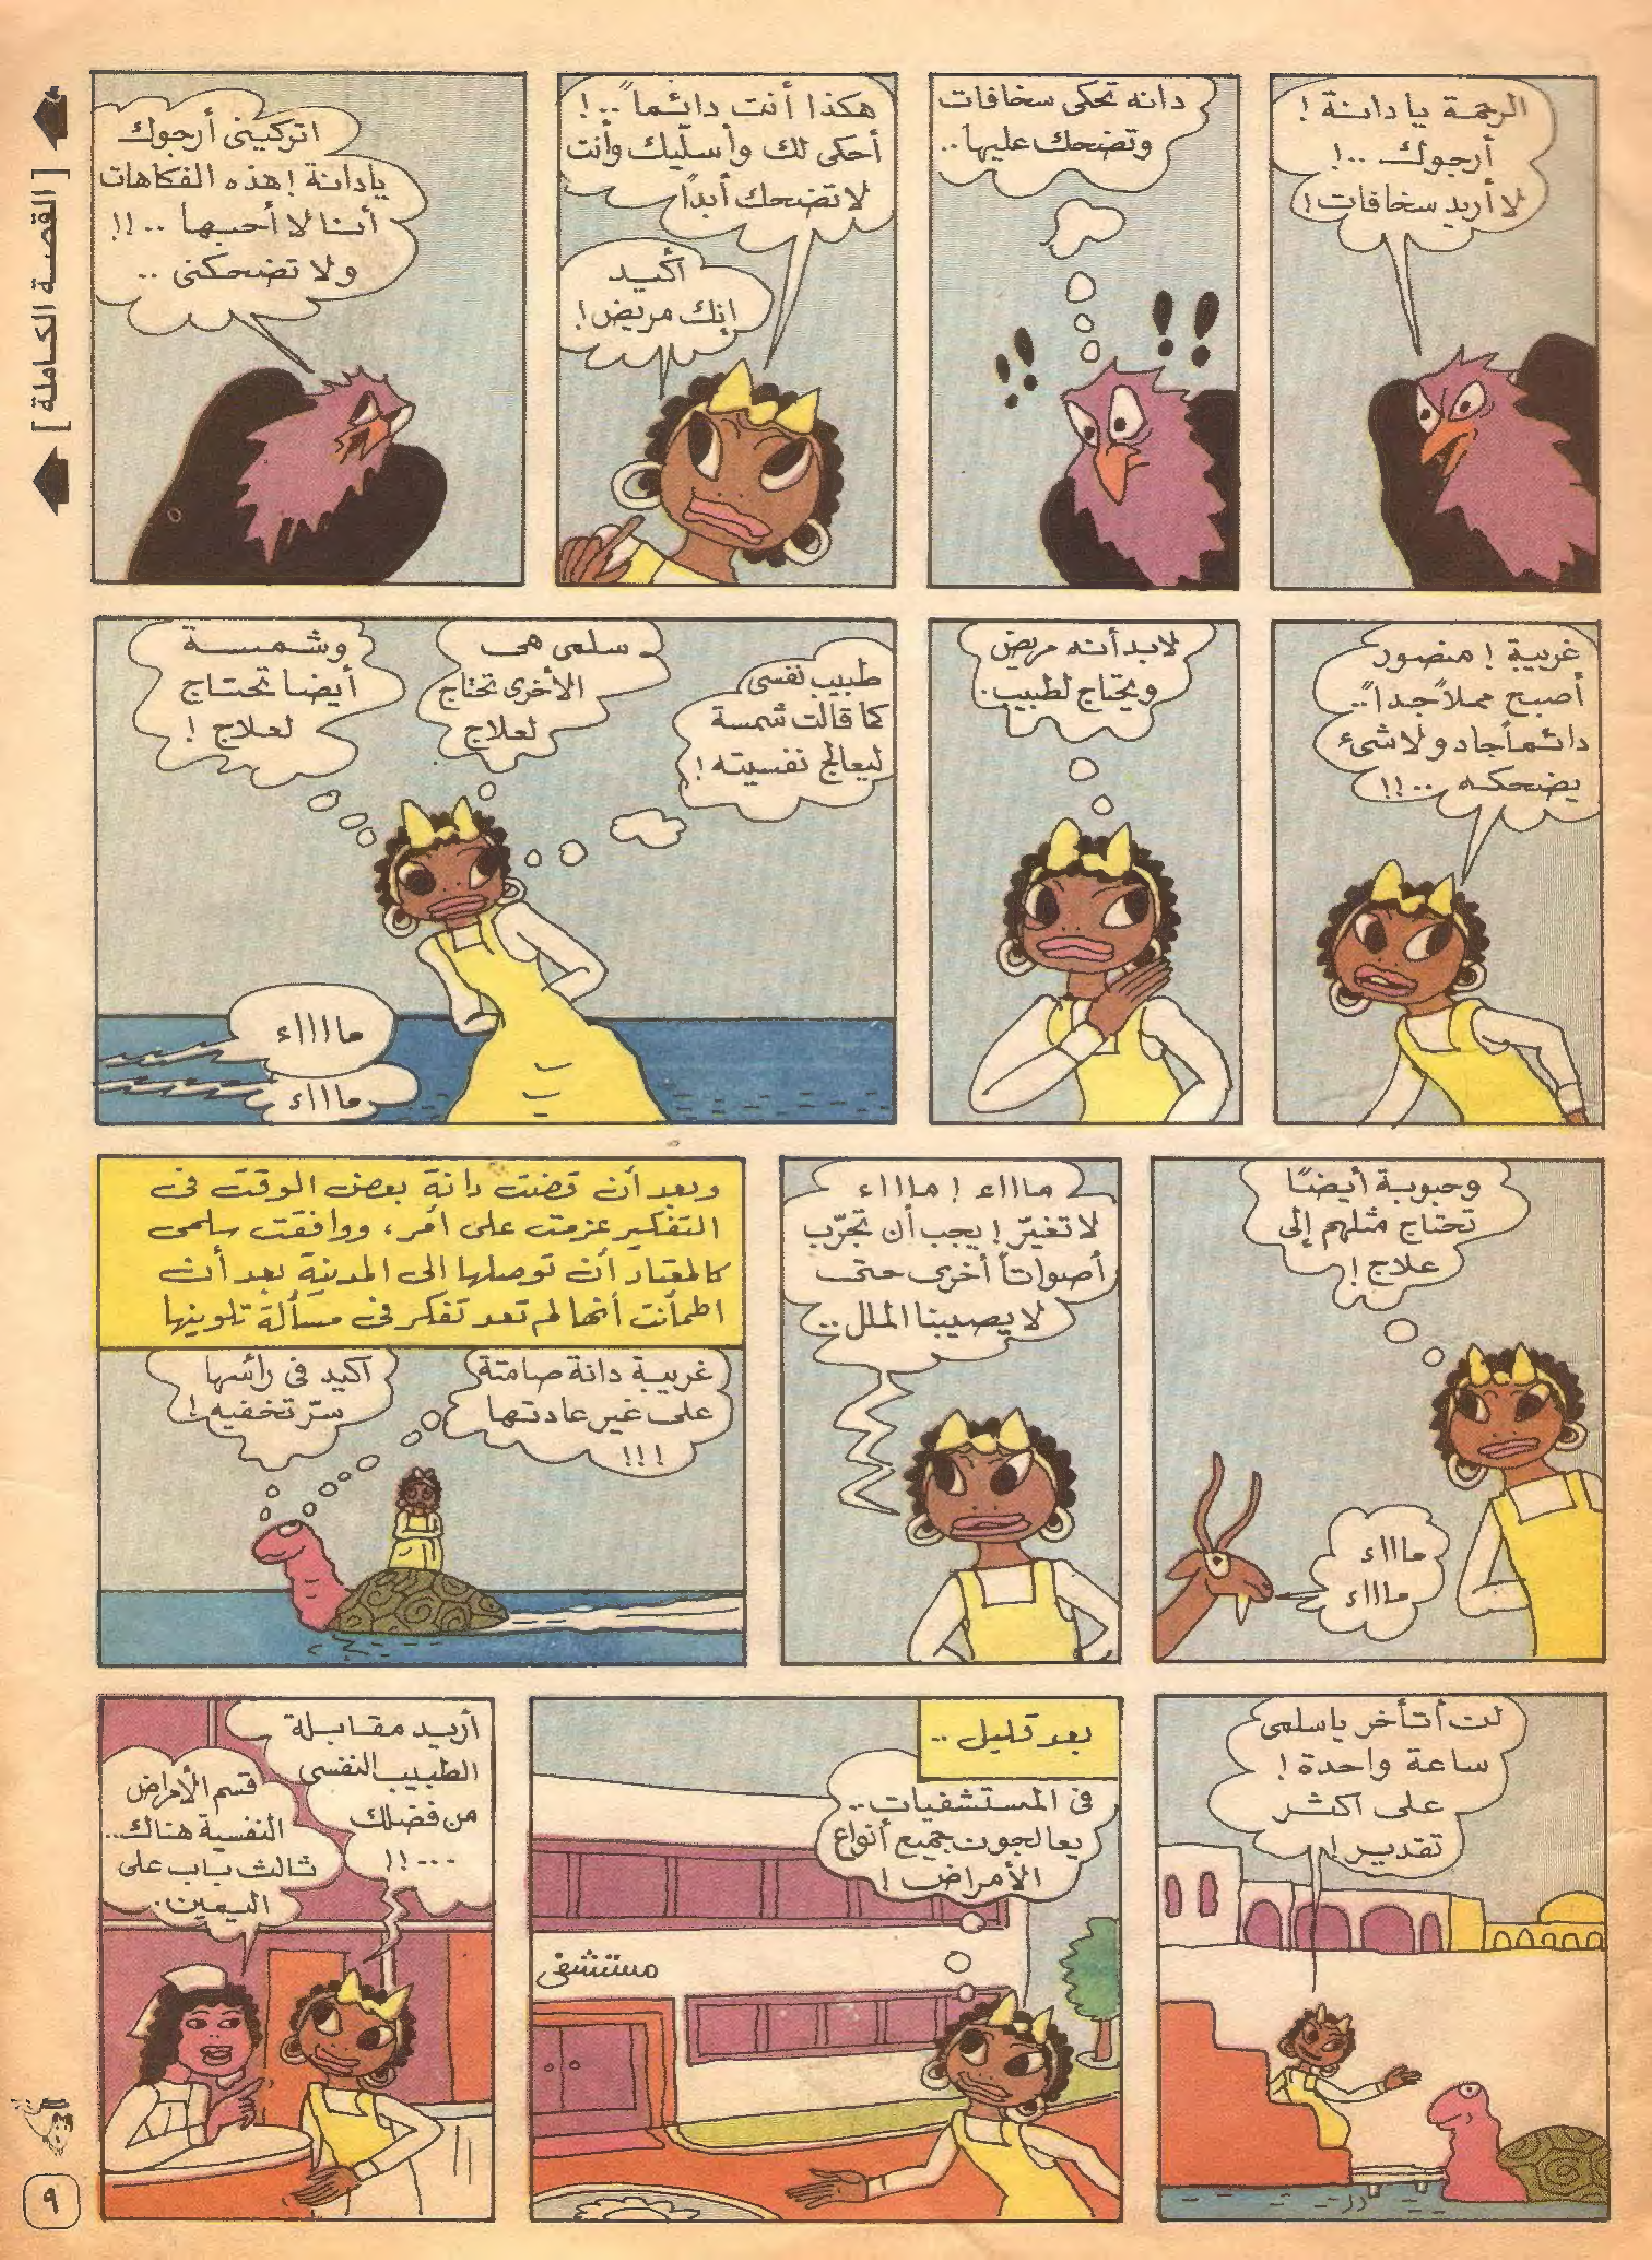 [ القصة الكاملة ]
الرحمة يا دانة !
أرجوك ..!
لا أريد سخافات !
دانه تحكى سخافات
وتضحك عليها ..
هكذا أنت دائماً ..!
أحكى لك وأسلّيك وأنت
لا تضحك أبداً
أكيد
إنك مريض !
اتركينى أرجوك
يادانة ! هذه الفكاهات
أنا لا أحبها ..!!
ولا تضحكنى ..
غريبة ! منصور
أصبح مملاً جداً ..
دائماً جاد ولا شىء
يضحكه ..!!
لابد أنه مريض
ويحتاج لطبيب .
طبيب نفسى
كما قالت شمسة
ليعالج نفسيته !
سلمى هى
الأخرى تحتاج
لعلاج
وشمسة
أيضا تحتاج
لعلاج !
ماااااء
ماااء
وحبوبة أيضًا
تحتاج مثلهم إلى
علاج !
مااااء
مااااء
مااااء ! مااااء
لا تغيّر ! يجب أن تجرّب
أصواتاً أخرى حتى
لا يصيبنا الملل ..
وبعد أن قضت دانة بعض الوقت فى
التفكير عزمت على أمر ، ووافقت سلمى
كالمعتاد أن توصلها الى المدينة بعد أن
اطمأنت أنها لم تعد تفكر فى مسألة تلوينها
غريبة دانة صامتة
على غير عادتها
!!!
أكيد فى رأسها
سرّ تخفيه !
لن أتأخر ياسلمى
ساعة واحدة !
على اكثر
تقدير !
بعد قليل ..
فى المستشفيات ..
يعالجون جميع أنواع
الأمراض !
مستشفى
أريد مقابلة
الطبيب النفسى
من فضلك
...!!
قسم الأمراض
النفسية هناك ..
ثالث باب على
اليمين .
٩